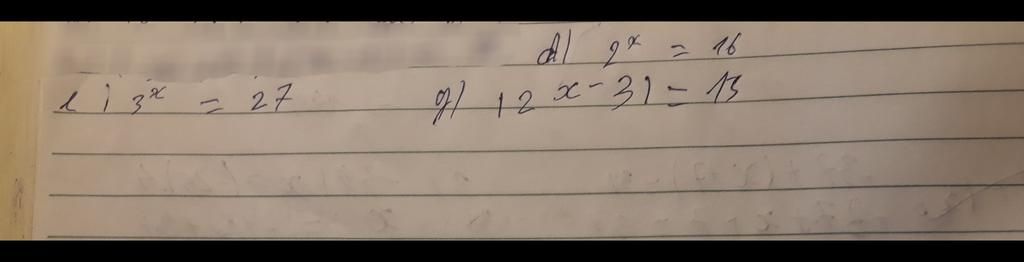 d) 2ˣ = 16
e) 3ˣ = 27 g) |2x - 3| = 13